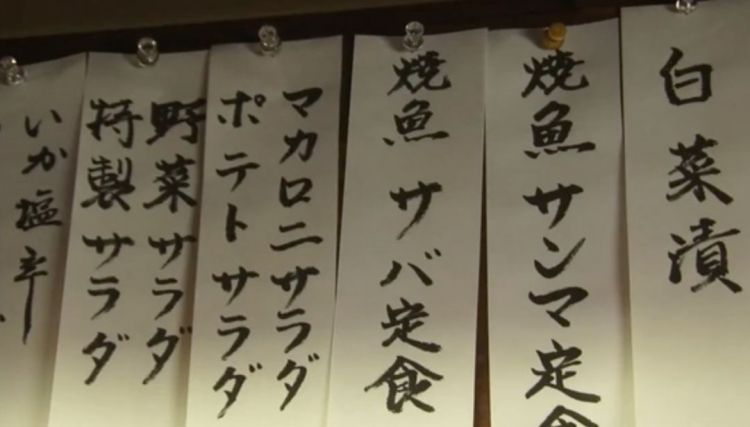 白菜漬
焼魚 サンマ定食
焼魚 サバ定食
マカロニサラダ
ポテトサラダ
野菜サラダ
特製サラダ
いか塩辛